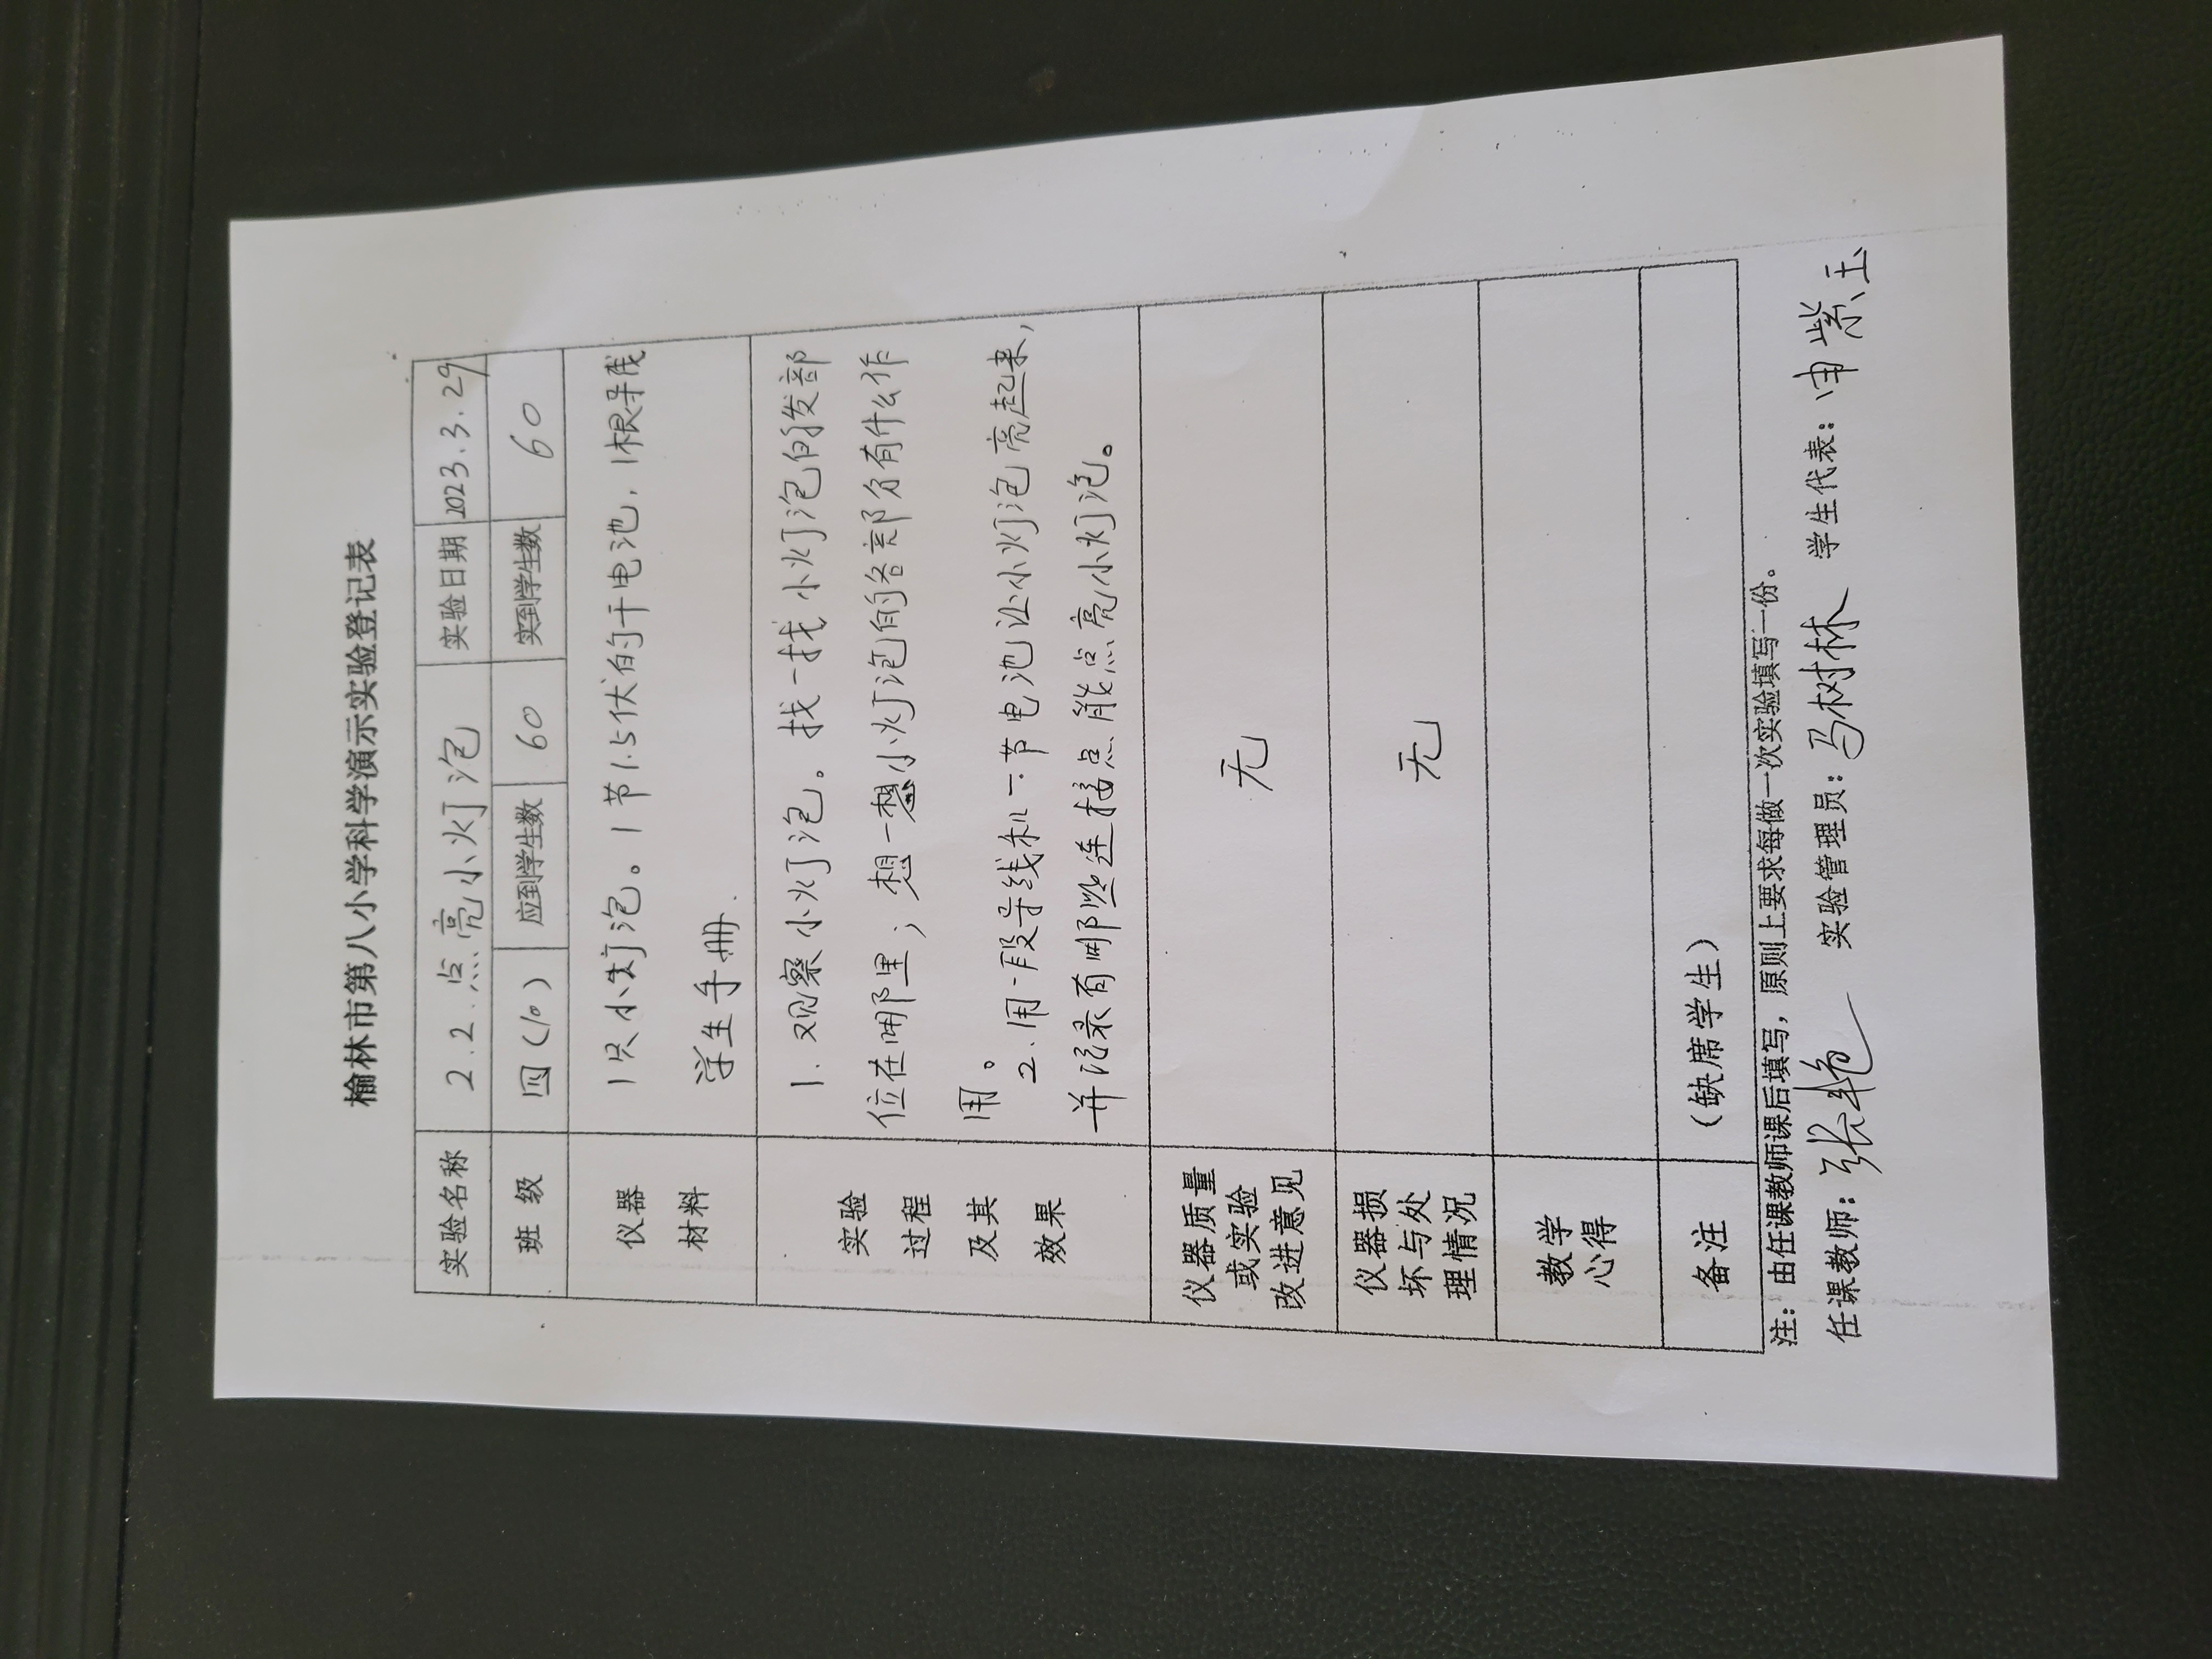 榆林市第八小学科学演示实验登记表
实验名称 2.2.点亮小灯泡 实验日期 2023.3.29
班 级 四(10) 应到学生数 60 实到学生数 60
仪器 1只小灯泡。1节1.5伏的干电池,1根导线
材料 学生手册.
1.观察小灯泡。找一找小灯泡的发部
实验 位在哪里;想一想小灯泡的各部分有什么作
过程 用。
及其 2.用一段导线和一节电池让小灯泡亮起来,
效果 并记录有哪些连接点能点亮小灯泡。
仪器质量
或实验 无
改进意见
仪器损
坏与处 无
理情况
教学
心得
备注 (缺席学生)
注:由任课教师课后填写,原则上要求每做一次实验填写一份。
任课教师:张艳 实验管理员:马树林 学生代表:申紫玉